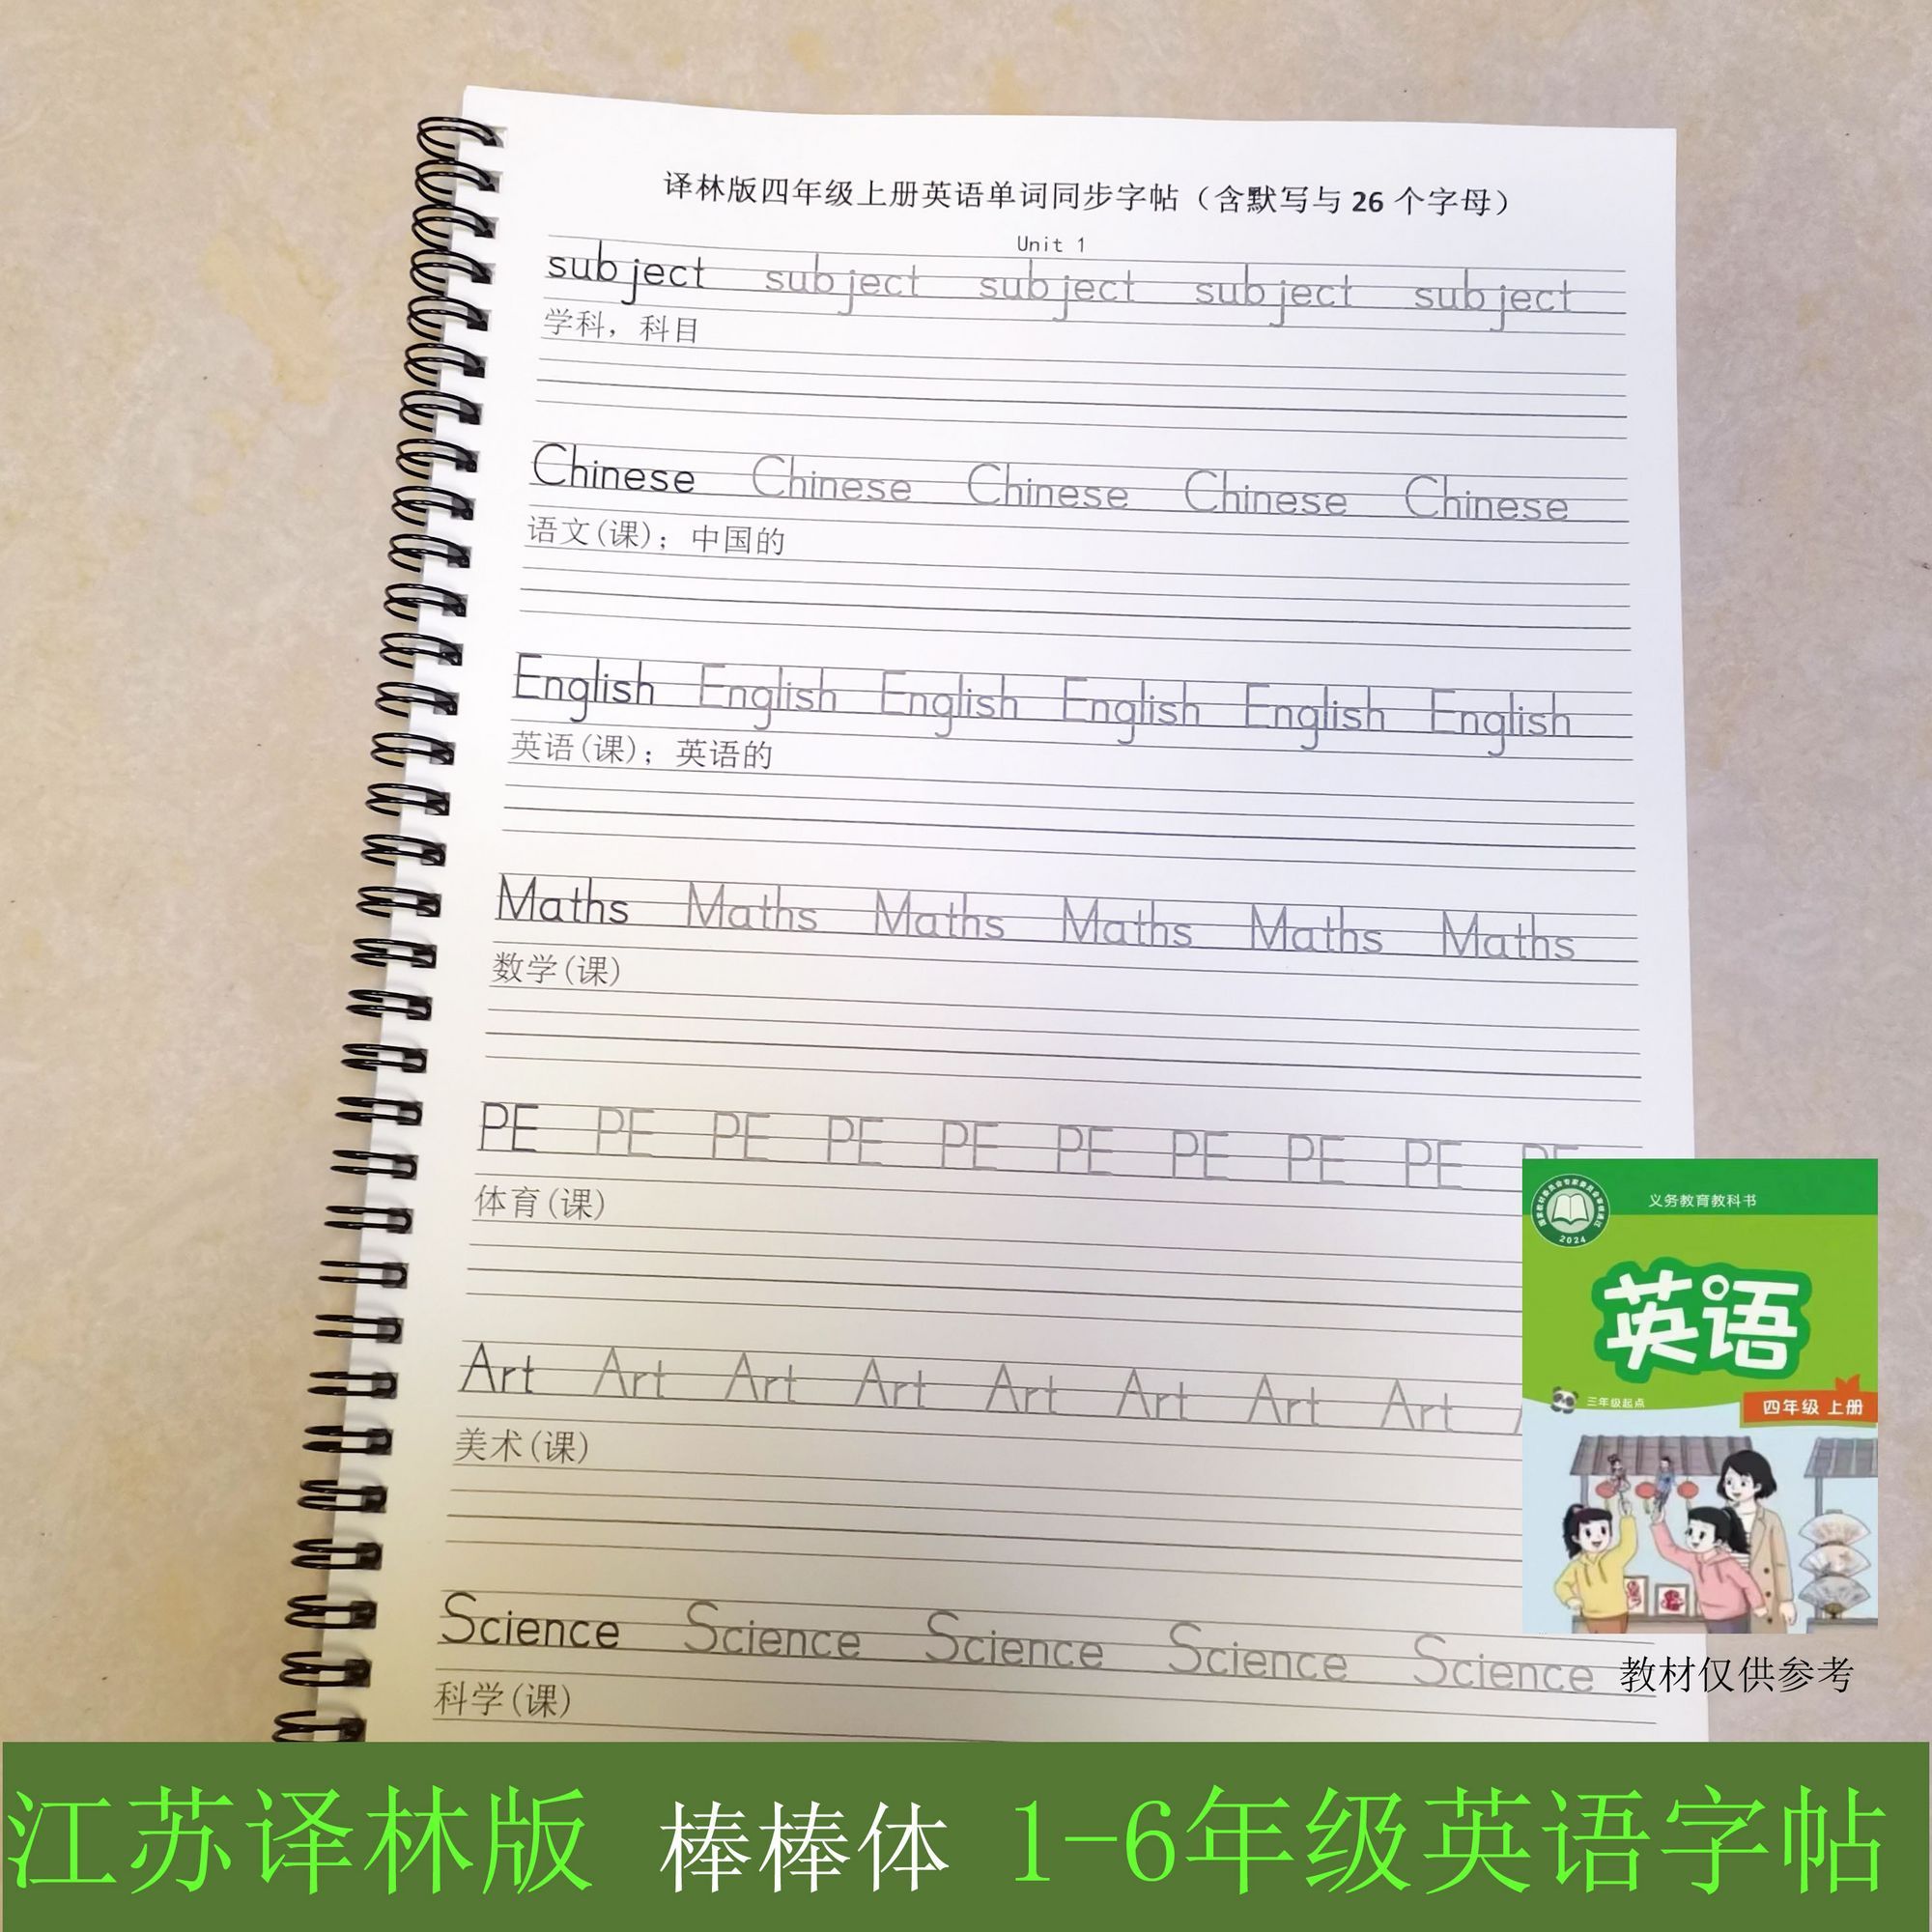 译林版四年级上册英语单词同步字帖（含默写与 26 个字母）
Unit 1
subject subject subject subject subject
学科，科目
Chinese Chinese Chinese Chinese Chinese
语文(课)；中国的
English English English English English English
英语(课)；英语的
Maths Maths Maths Maths Maths Maths
数学(课)
PE PE PE PE PE PE PE PE PE PE
体育(课)
Art Art Art Art Art Art Art Art
美术(课)
Science Science Science Science Science
科学(课)
义务教育教科书
2024
英语
三年级起点
四年级 上册
教材仅供参考
江苏译林版 棒棒体 1-6年级英语字帖